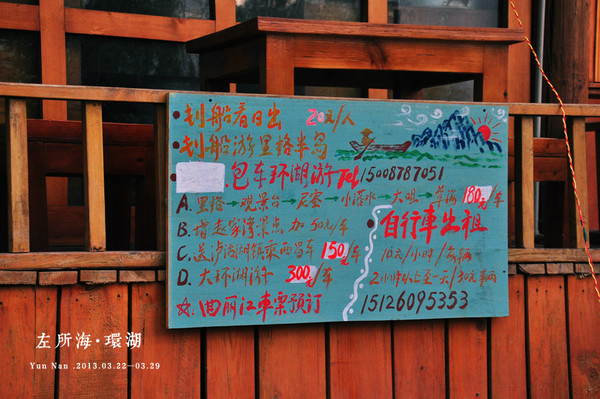 划船看日出 20元/人
划船游里格半岛
包车环湖游 Tel 15008787051
A. 里格→观景台→尼赛→小落水→大咀→草海 180元/车
B. 增赵家湾景点 加50元/车
C. 送泸沽湖镇乘西昌车 150元/车
D. 大环湖游 300元/车
回丽江车票预订
自行车出租
10元/小时/每辆
2小时以上至一天/30元每辆
15126095353
左所海·環湖
Yun Nan .2013.03.22—03.29